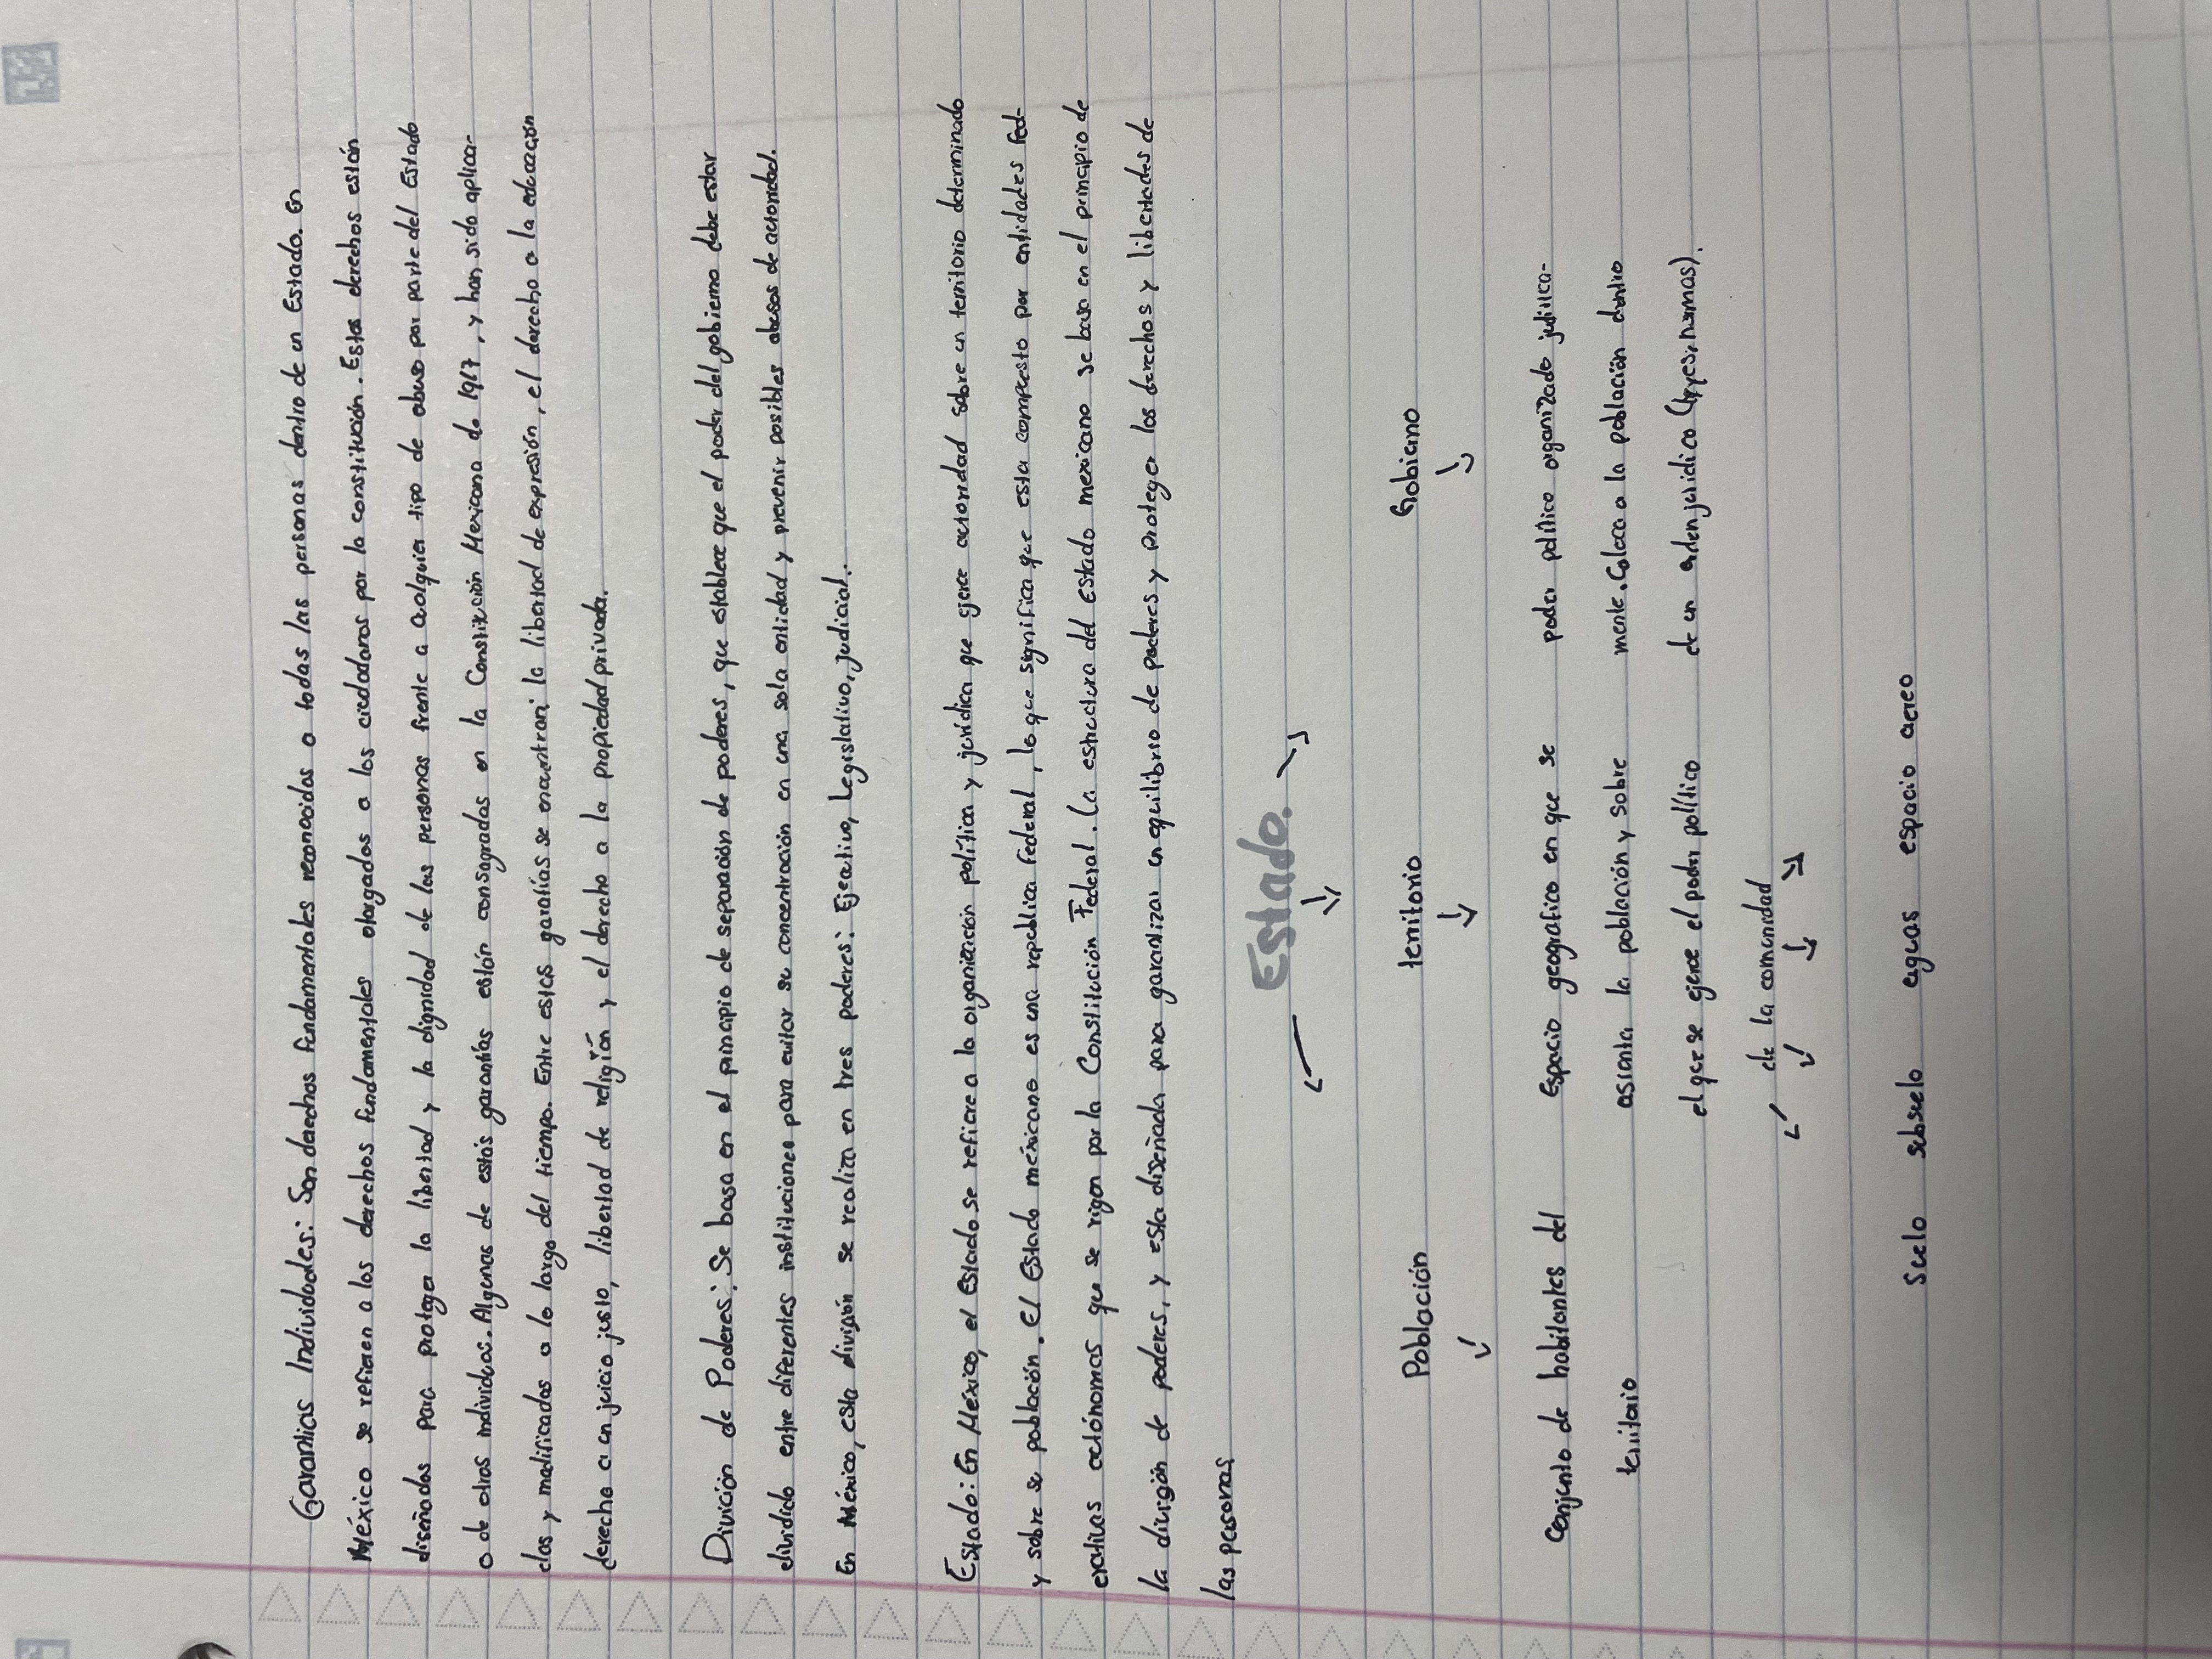 Garantias Individuales: Son derechos fundamentales reconocidos a todas las personas dentro de un Estado. En
México se refieren a los derechos fundamentales otorgados a los ciudadanos por la constitución. Estos derechos están
diseñados para proteger la libertad y la dignidad de las personas frente a cualquier tipo de abuso por parte del Estado
o de otros individuos. Algunas de estas garantías están consagradas en la Constitución Mexicana de 1917, y han sido aplica-
das y modificadas a lo largo del tiempo. Entre estas garantías se encuentran: la libertad de expresión, el derecho a la educación
derecho a un juicio justo, libertad de religión y el derecho a la propiedad privada.
División de Poderes: Se basa en el principio de separación de poderes, que establece que el poder del gobierno debe estar
dividido entre diferentes instituciones para evitar su concentración en una sola entidad y prevenir posibles abusos de autoridad.
En México, esta división se realiza en tres poderes: Ejecutivo, Legislativo, judicial.
Estado: En México, el Estado se refiere a la organización política y jurídica que ejerce autoridad sobre un territorio determinado
y sobre su población. El Estado méxicano es una republica federal, lo que significa que esta compuesto por entidades fed-
erativas autónomas que se rigen por la Constitución Federal. La estructura del Estado mexicano se basa en el principio de
la división de poderes, y esta diseñada para garantizar un equilibrio de poderes y proteger los derechos y libertades de
las personas
Estado.
Población territorio Gobierno
Conjunto de habitantes del Espacio geografico en que se poder político organizado juridica-
territorio asienta la población y sobre mente. Coloca a la población dentro
el que se ejerce el poder político de un orden jurídico (leyes, normas).
de la comunidad
Suelo subsuelo aguas espacio aereo